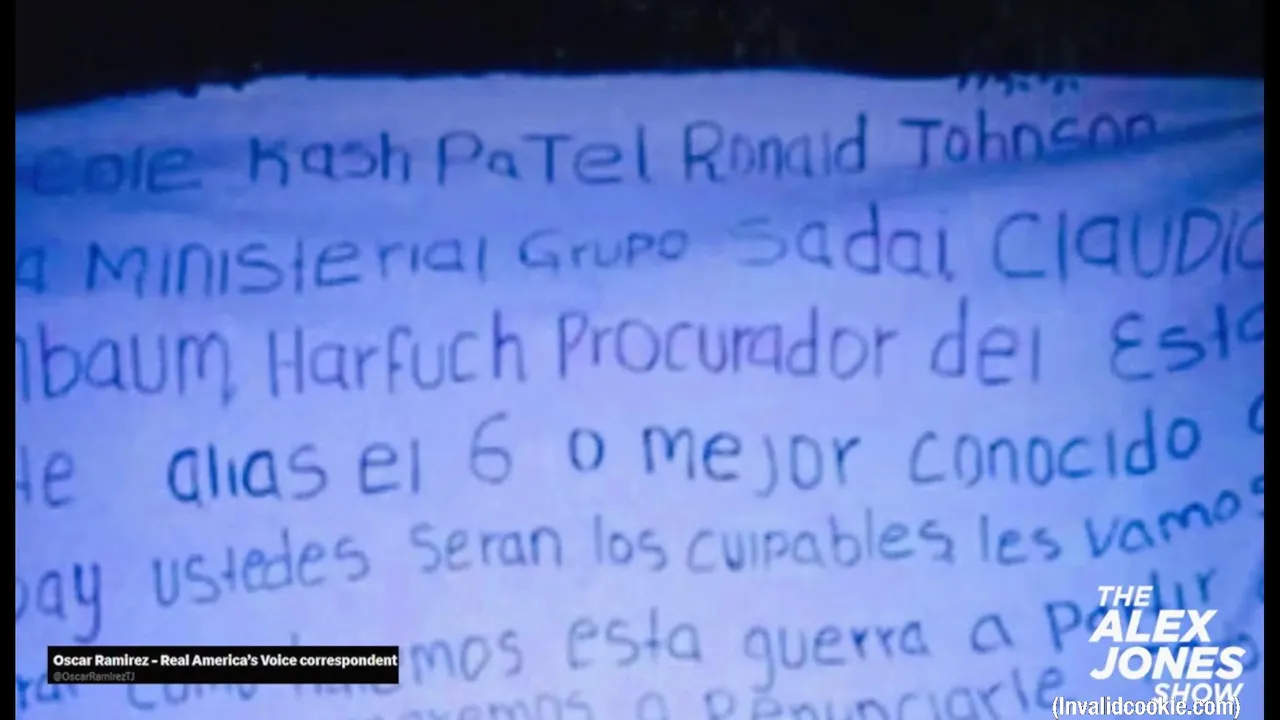 eole Kash PaTel Ronald Johnson
a Ministerial Grupo Sadai ClaUDIa
nbaum, Harfuch Procurador del Esta
te alias el 6 o mejor conocido
bay ustedes seran los culpables, les vamos
mos esta guerra a partir
a renunciarle
Oscar Ramirez – Real America's Voice correspondent
@OscarRamirezTJ
THE
ALEX
JONES
SHOW
(Invalidcookie.com)